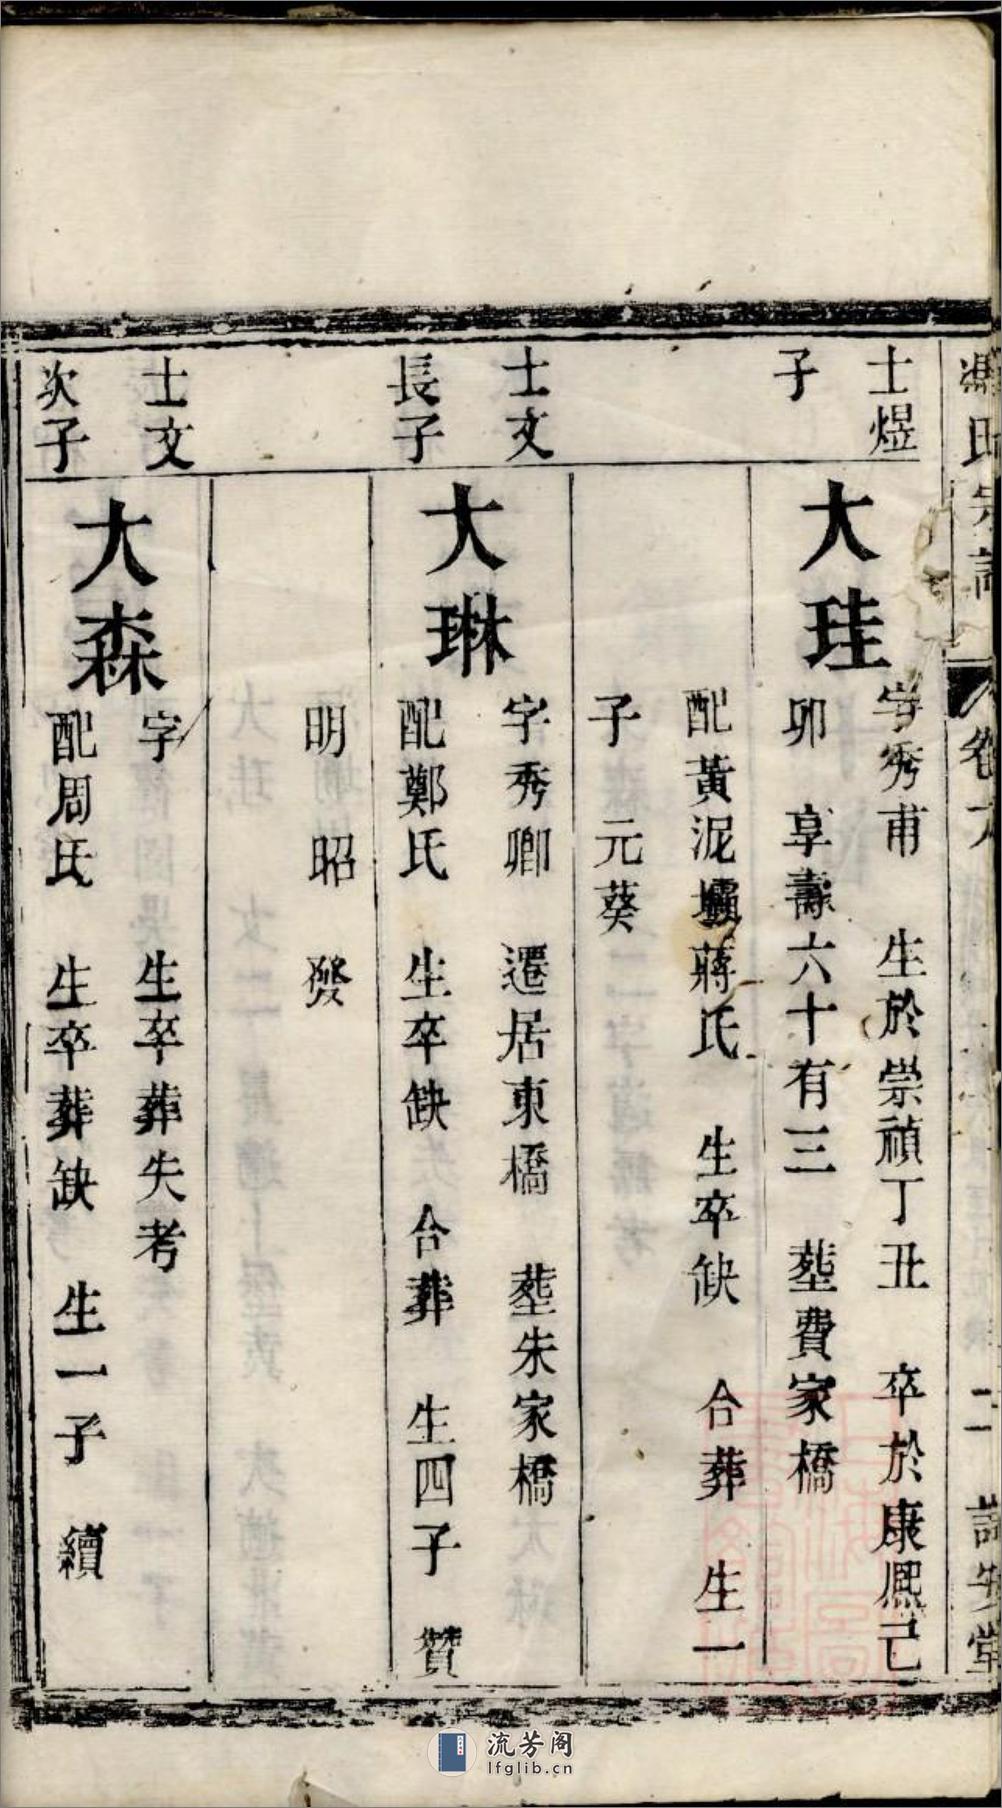 馮氏宗譜
卷六
二
詒安堂
士煜
子
大珪
字秀甫 生於崇禎丁丑 卒於康熙己
卯 享壽六十有三 塟費家橋
配黃泥壩蔣氏 生卒缺 合葬 生一
子 元葵
士文
長子
大琳
字秀卿 遷居東橋 塟朱家橋
配鄭氏 生卒缺 合葬 生四子 贊
明 昭 發
士文
次子
大森
字 生卒葬失考
配周氏 生卒葬缺 生一子 續
流芳阁
lfglib.cn